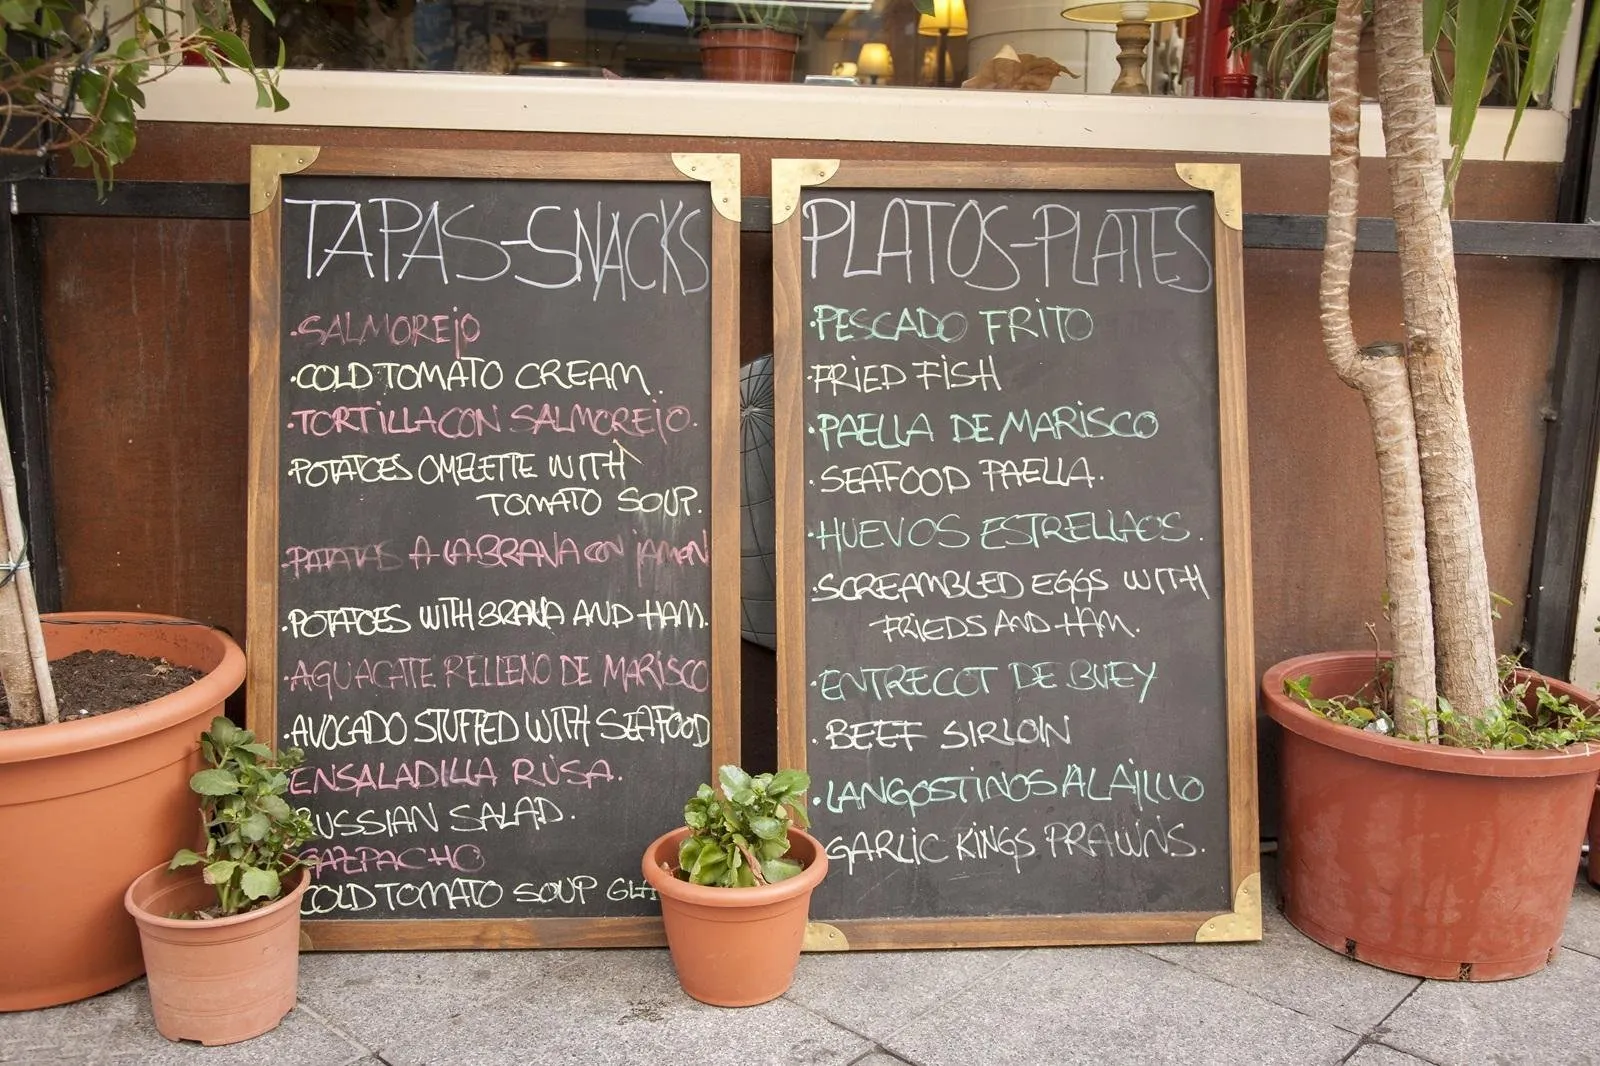 TAPAS-SNACKS
·SALMOREjO
·COLD TOMATO CREAM.
·TORTILLA CON SALMOREJO.
·POTATOES OMELETTE WITH
TOMATO SOUP.
·PATATAS A LA BRAVA CON jAMON
·POTATOES WITH BRAVA AND HAM.
·AGUACATE RELLENO DE MARISCO
·AVOCADO STUFFED WITH SEAFOOD
ENSALADILLA RUSA.
RUSSIAN SALAD.
GAZPACHO
COLD TOMATO SOUP
PLATOS-PLATES
·PESCADO FRITO
·FRIED FISH
·PAELLA DE MARISCO
·SEAFOOD PAELLA.
·HUEVOS ESTRELLAOS.
·SCREAMBLED EGGS WITH
FRIEDS AND HAM.
·ENTRECOT DE BUEY
·BEEF SIRLOIN
·LANGOSTINOS AL AJILLO
·GARLIC KINGS PRAWNS.